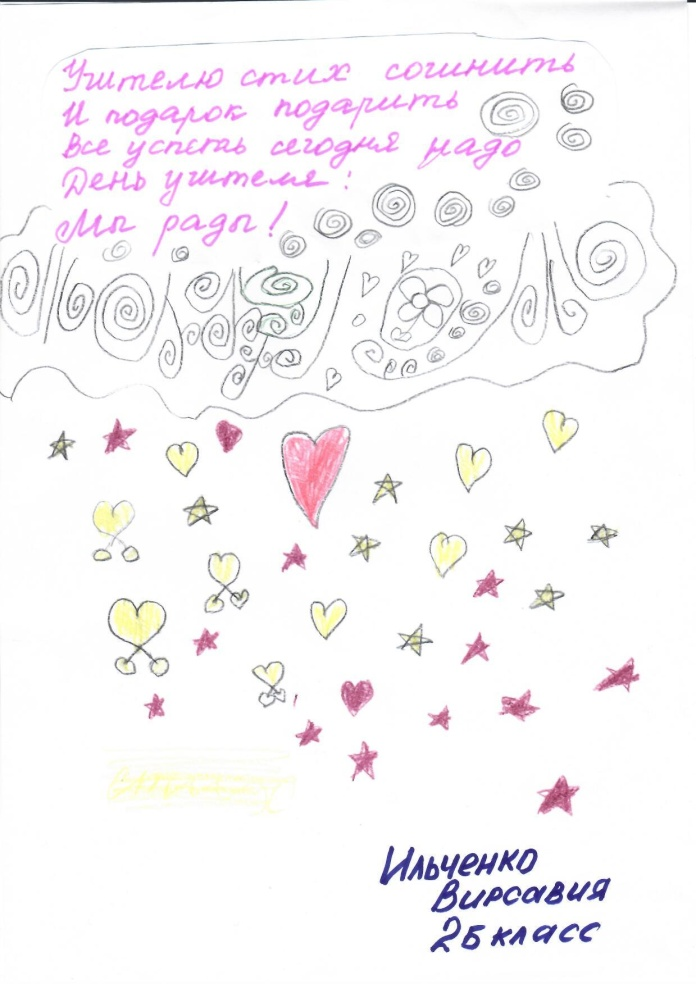 Учителю стих сочинить
И подарок подарить
Все успеть сегодня надо
День учителя!
Мы рады!
Ильченко
Вирсавия
2Б класс